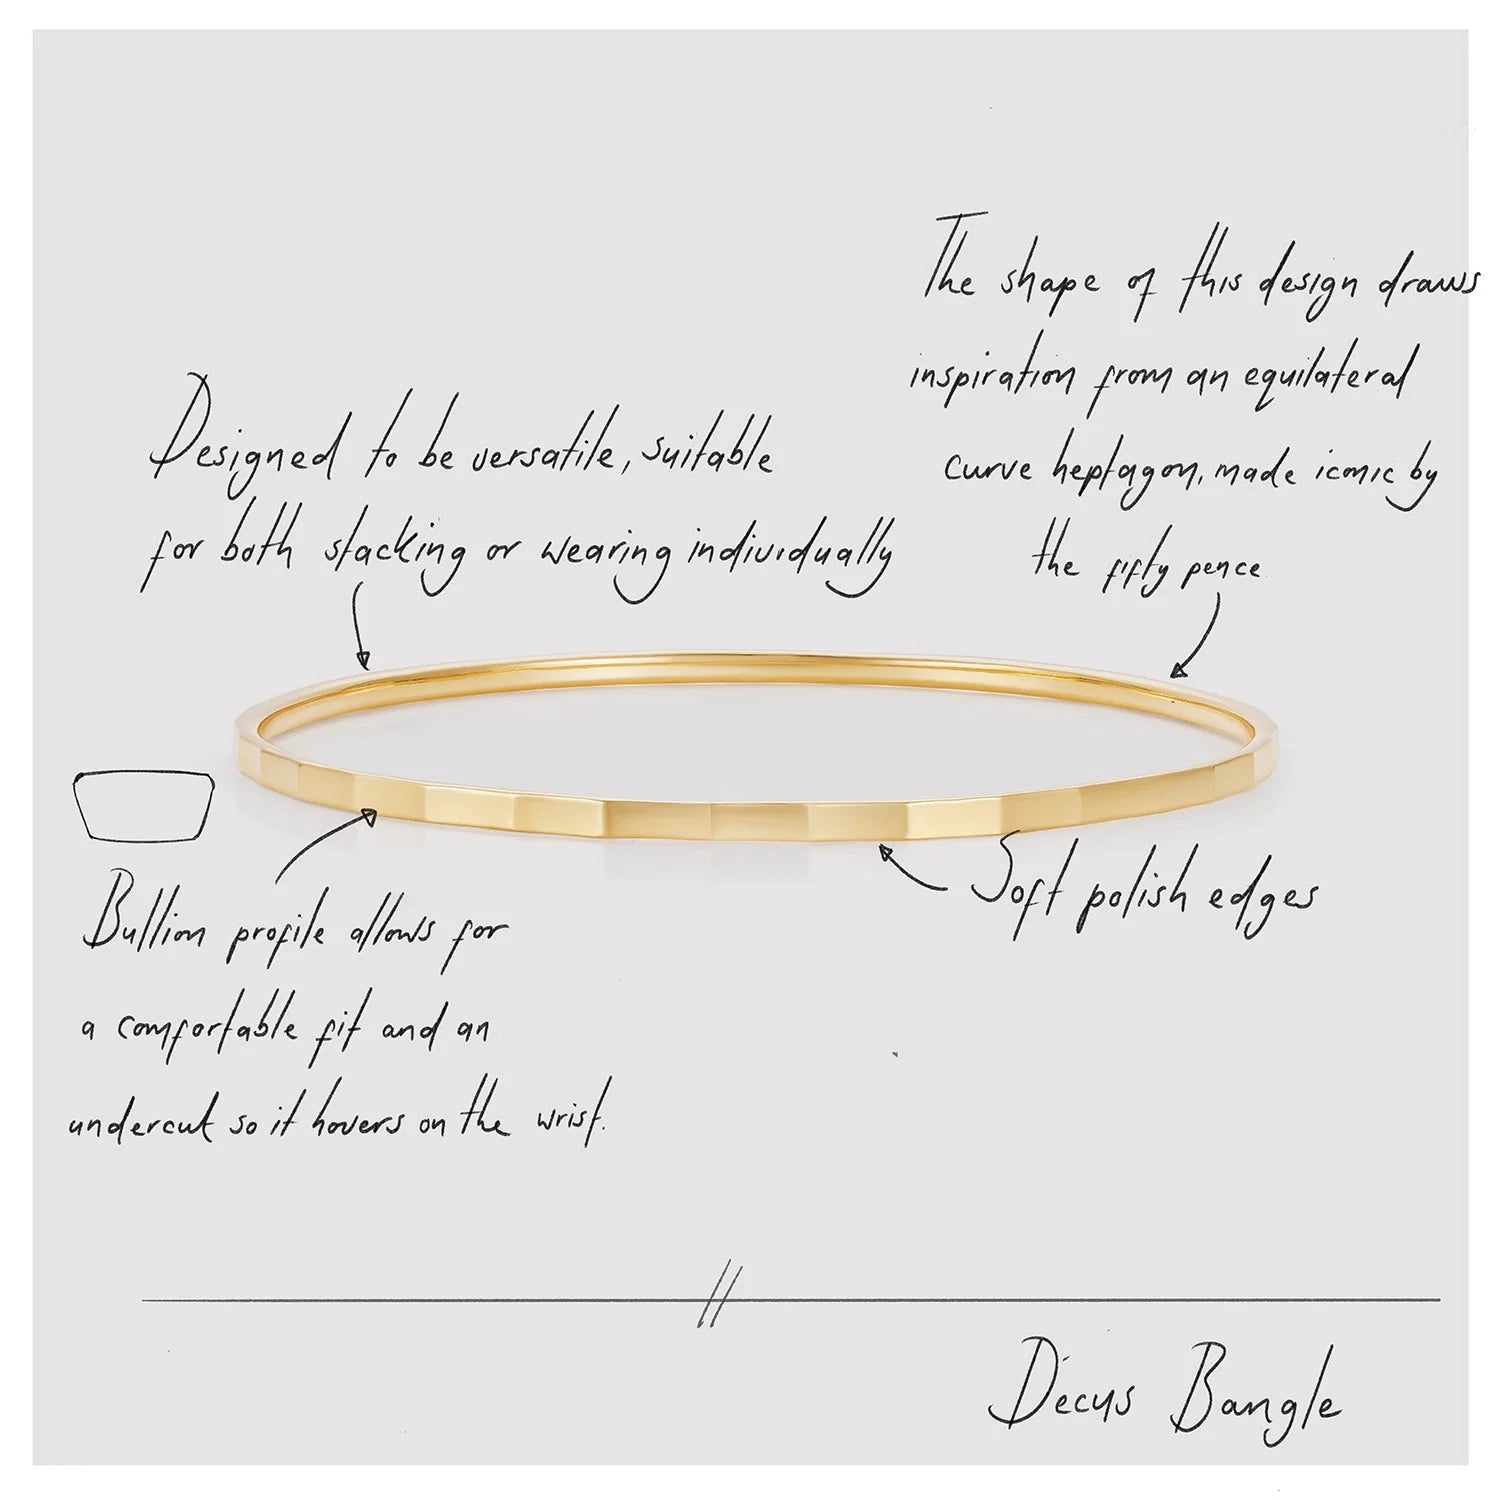 The shape of this design draws
inspiration from an equilateral
curve heptagon, made iconic by
the fifty pence
Designed to be versatile, suitable
for both stacking or wearing individually
Soft polish edges
Bullion profile allows for
a comfortable fit and an
undercut so it hovers on the wrist.
Decus Bangle